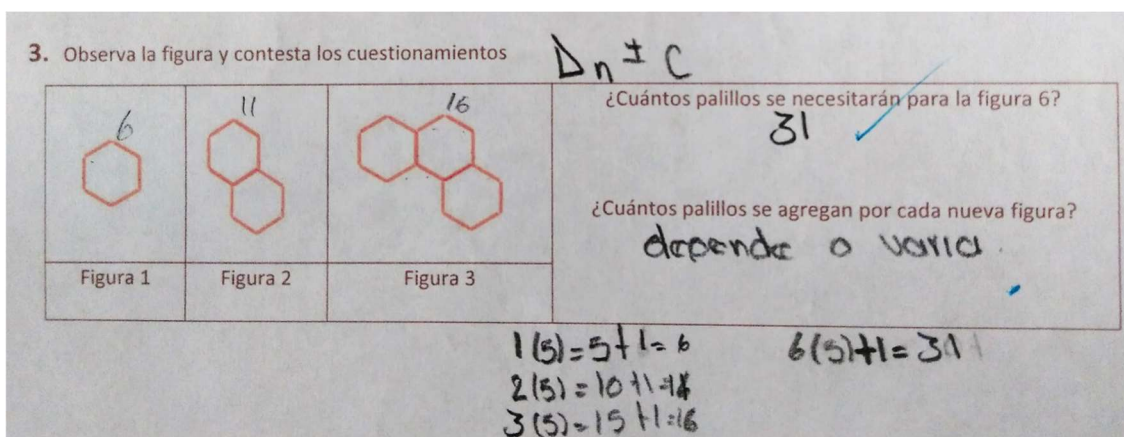 3. Observa la figura y contesta los cuestionamientos
Δn ± C
6
11
16
Figura 1
Figura 2
Figura 3
¿Cuántos palillos se necesitarán para la figura 6?
31
¿Cuántos palillos se agregan por cada nueva figura?
depende o varia.
1(5)=5+1=6
2(5)=10+1=11
3(5)=15+1=16
6(5)+1=31